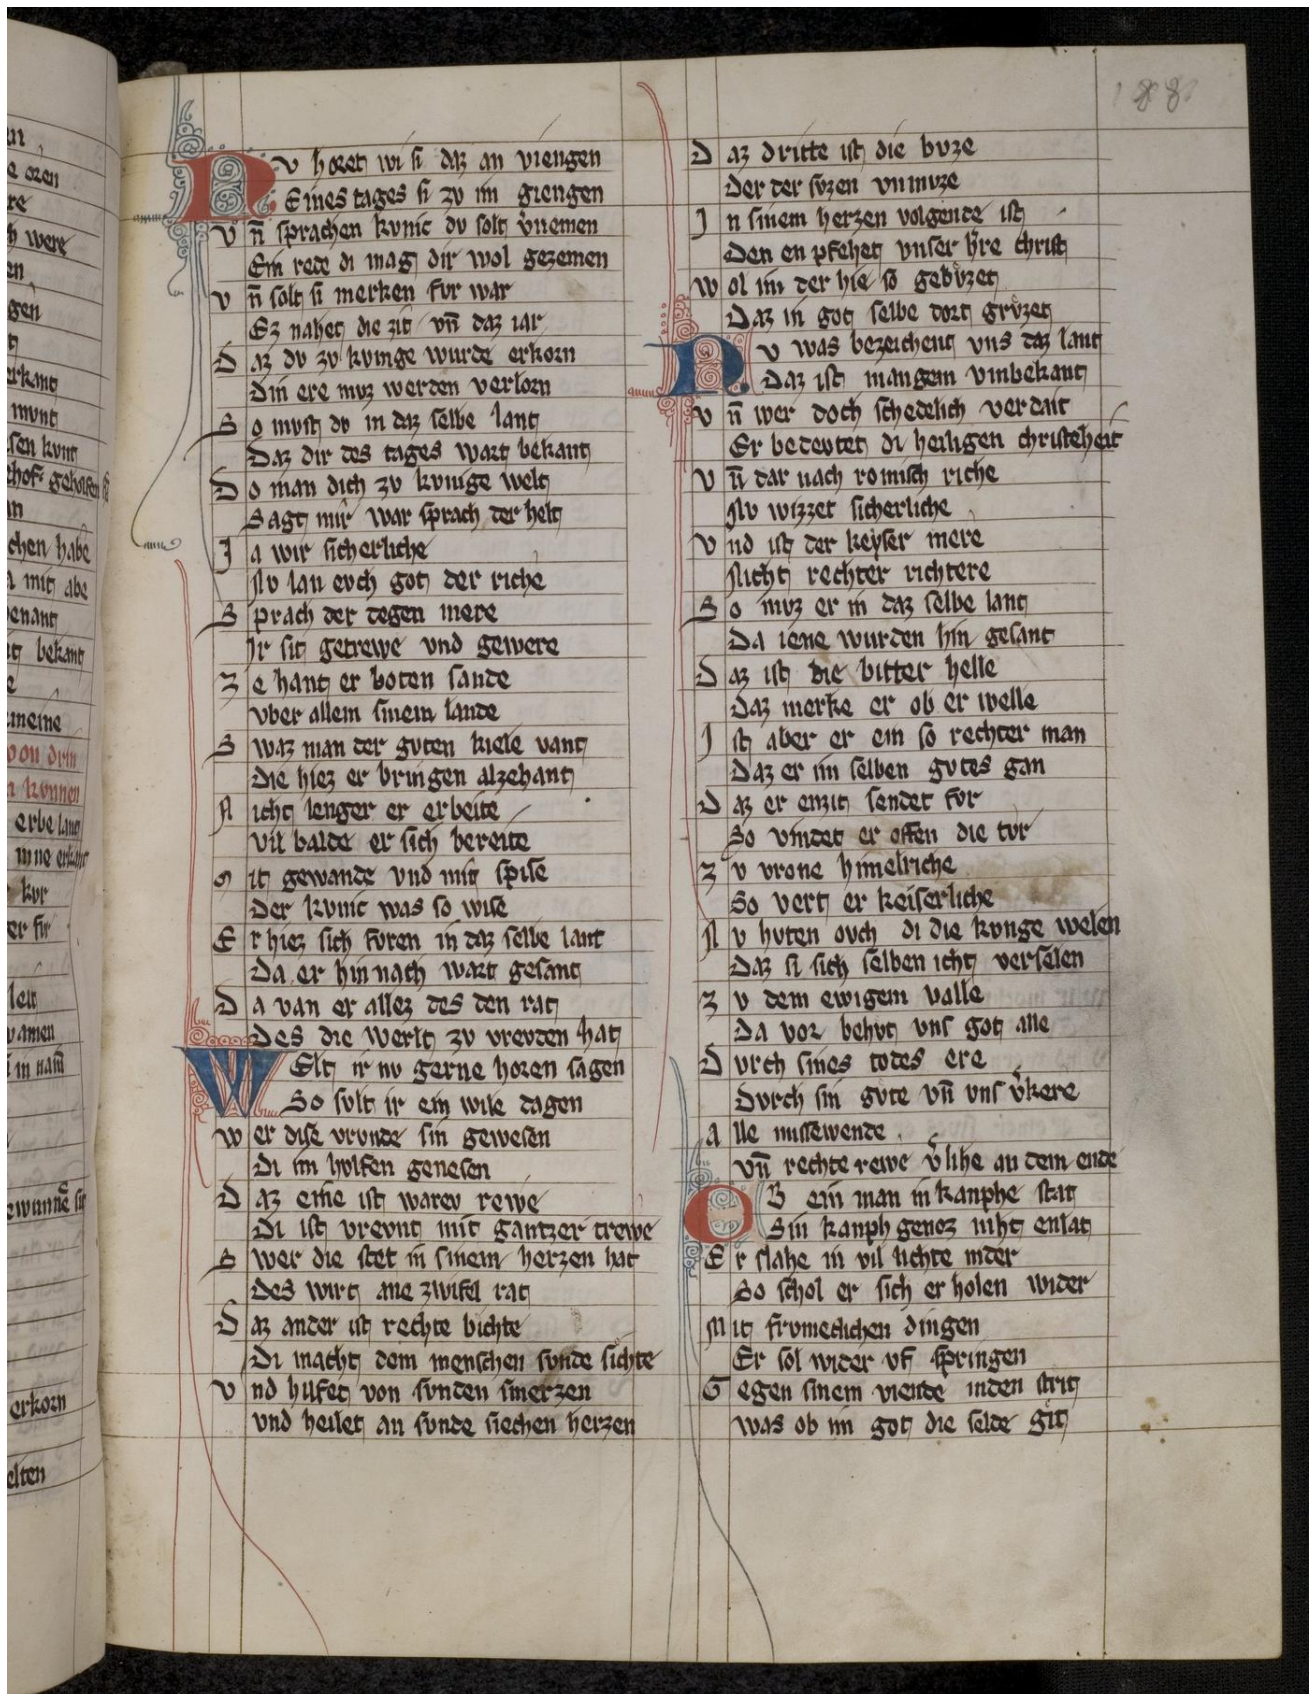 188
Nv horet wi si daz an viengen
Eines tages si zv im giengen
Vn̄ sprachen kvnic dv solt v̾nemen
Ein rede di mag dir wol gezemen
Vn̄ solt si merken fvr war
Ez nahet die zit vn̄ daz iar
Daz dv zv kvinge wurde erkorn
Din ere mvz werden verlorn
So mvst dv in daz selbe lant
Daz dir des tages wart bekant
Do man dich zv kvnige welt
Sagt mir war sprach der helt
Ja wir sicherliche
Nv lan evch got der riche
Sprach der degen mere
Ir sit getrewe vnd gewere
Ze hant er boten sande
Vber allem sinem lande
Swaz man der gvten kiele vant
Die hiez er bringen alzehant
Nicht lenger er erbeite
Vil balde er sich bereite
Mit gewande vnd mit spise
Der kvnic was so wise
Er hiez sich fvren in daz selbe lant
Da er hin nach wart gesant
Da van er allez des den rat
Des die werlt zv vrevden hat
WElt ir nv gerne horen sagen
So svlt ir ein wile dagen
Wer dise vrvnde sin gewesen
Di im holfen genesen
Daz eine ist warev rewe
Di ist vrevnt mit gantzer trewe
Swer die stet in sinem herzen hat
Des wirt ane zwifel rat
Daz ander ist rechte bichte
Di macht dem menschen svnde sichte
Vnd hilfet von svnden smerzen
Vnd heilet an svnde siechen herzen
Daz dritte ist die bvze
Der der svzen vnmvze
In sinem herzen volgende ist
Den en pfehet vnser h̾re christ
Wol im der hie so gebvzet
Daz in got selbe dort grvzet
Nv was bezeichent vns daz lant
Daz ist mangem vmbekant
Vn̄ wer doch schedelich verdait
Er bedevtet di heiligen christeheit
Vn̄ dar nach romisch riche
Nv wizzet sicherliche
Vnd ist der keyser mere
Nicht rechter richtere
So mvz er in daz selbe lant
Da iene wurden hin gesant
Daz ist die bitter helle
Daz merke er ob er welle
Ist aber er ein so rechter man
Daz er im selben gvtes gan
Daz er enzit sendet fvr
So vindet er offen die tvr
Zv vrone himelriche
So vert er keiserliche
Nv hvten ovch di die kvnge welen
Daz si sich selben icht verselen
Zv dem ewigem valle
Da vor behvt vns got alle
Dvrch sines todes ere
Dvrch sin gvte vn̄ vns v̾kere
Alle missewende
Vn̄ rechte rewe v̾lihe an dem ende
OB ein man in kanphe stat
Sin kanph genoz niht enlat
Er slahe in vil lichte nider
So schol er sich er holen wider
Mit frvmeclichen dingen
Er sol wider vf springen
Gegen sinem viende inden strit
Was ob im got die selde git